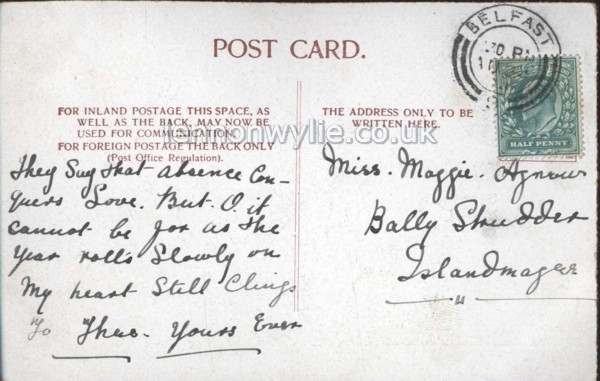 POST CARD.
BELFAST
HALF PENNY
FOR INLAND POSTAGE THIS SPACE, AS
WELL AS THE BACK, MAY NOW BE
USED FOR COMMUNICATION.
FOR FOREIGN POSTAGE THE BACK ONLY
(Post Office Regulation).
THE ADDRESS ONLY TO BE
WRITTEN HERE.
They Say that absence Con-
quers Love. But. O it
cannot be for as the
Year rolls Slowly on
My heart Still Clings
To Thee. Yours Ever
Miss. Maggie. Agnew
Bally Strudder
Islandmagee